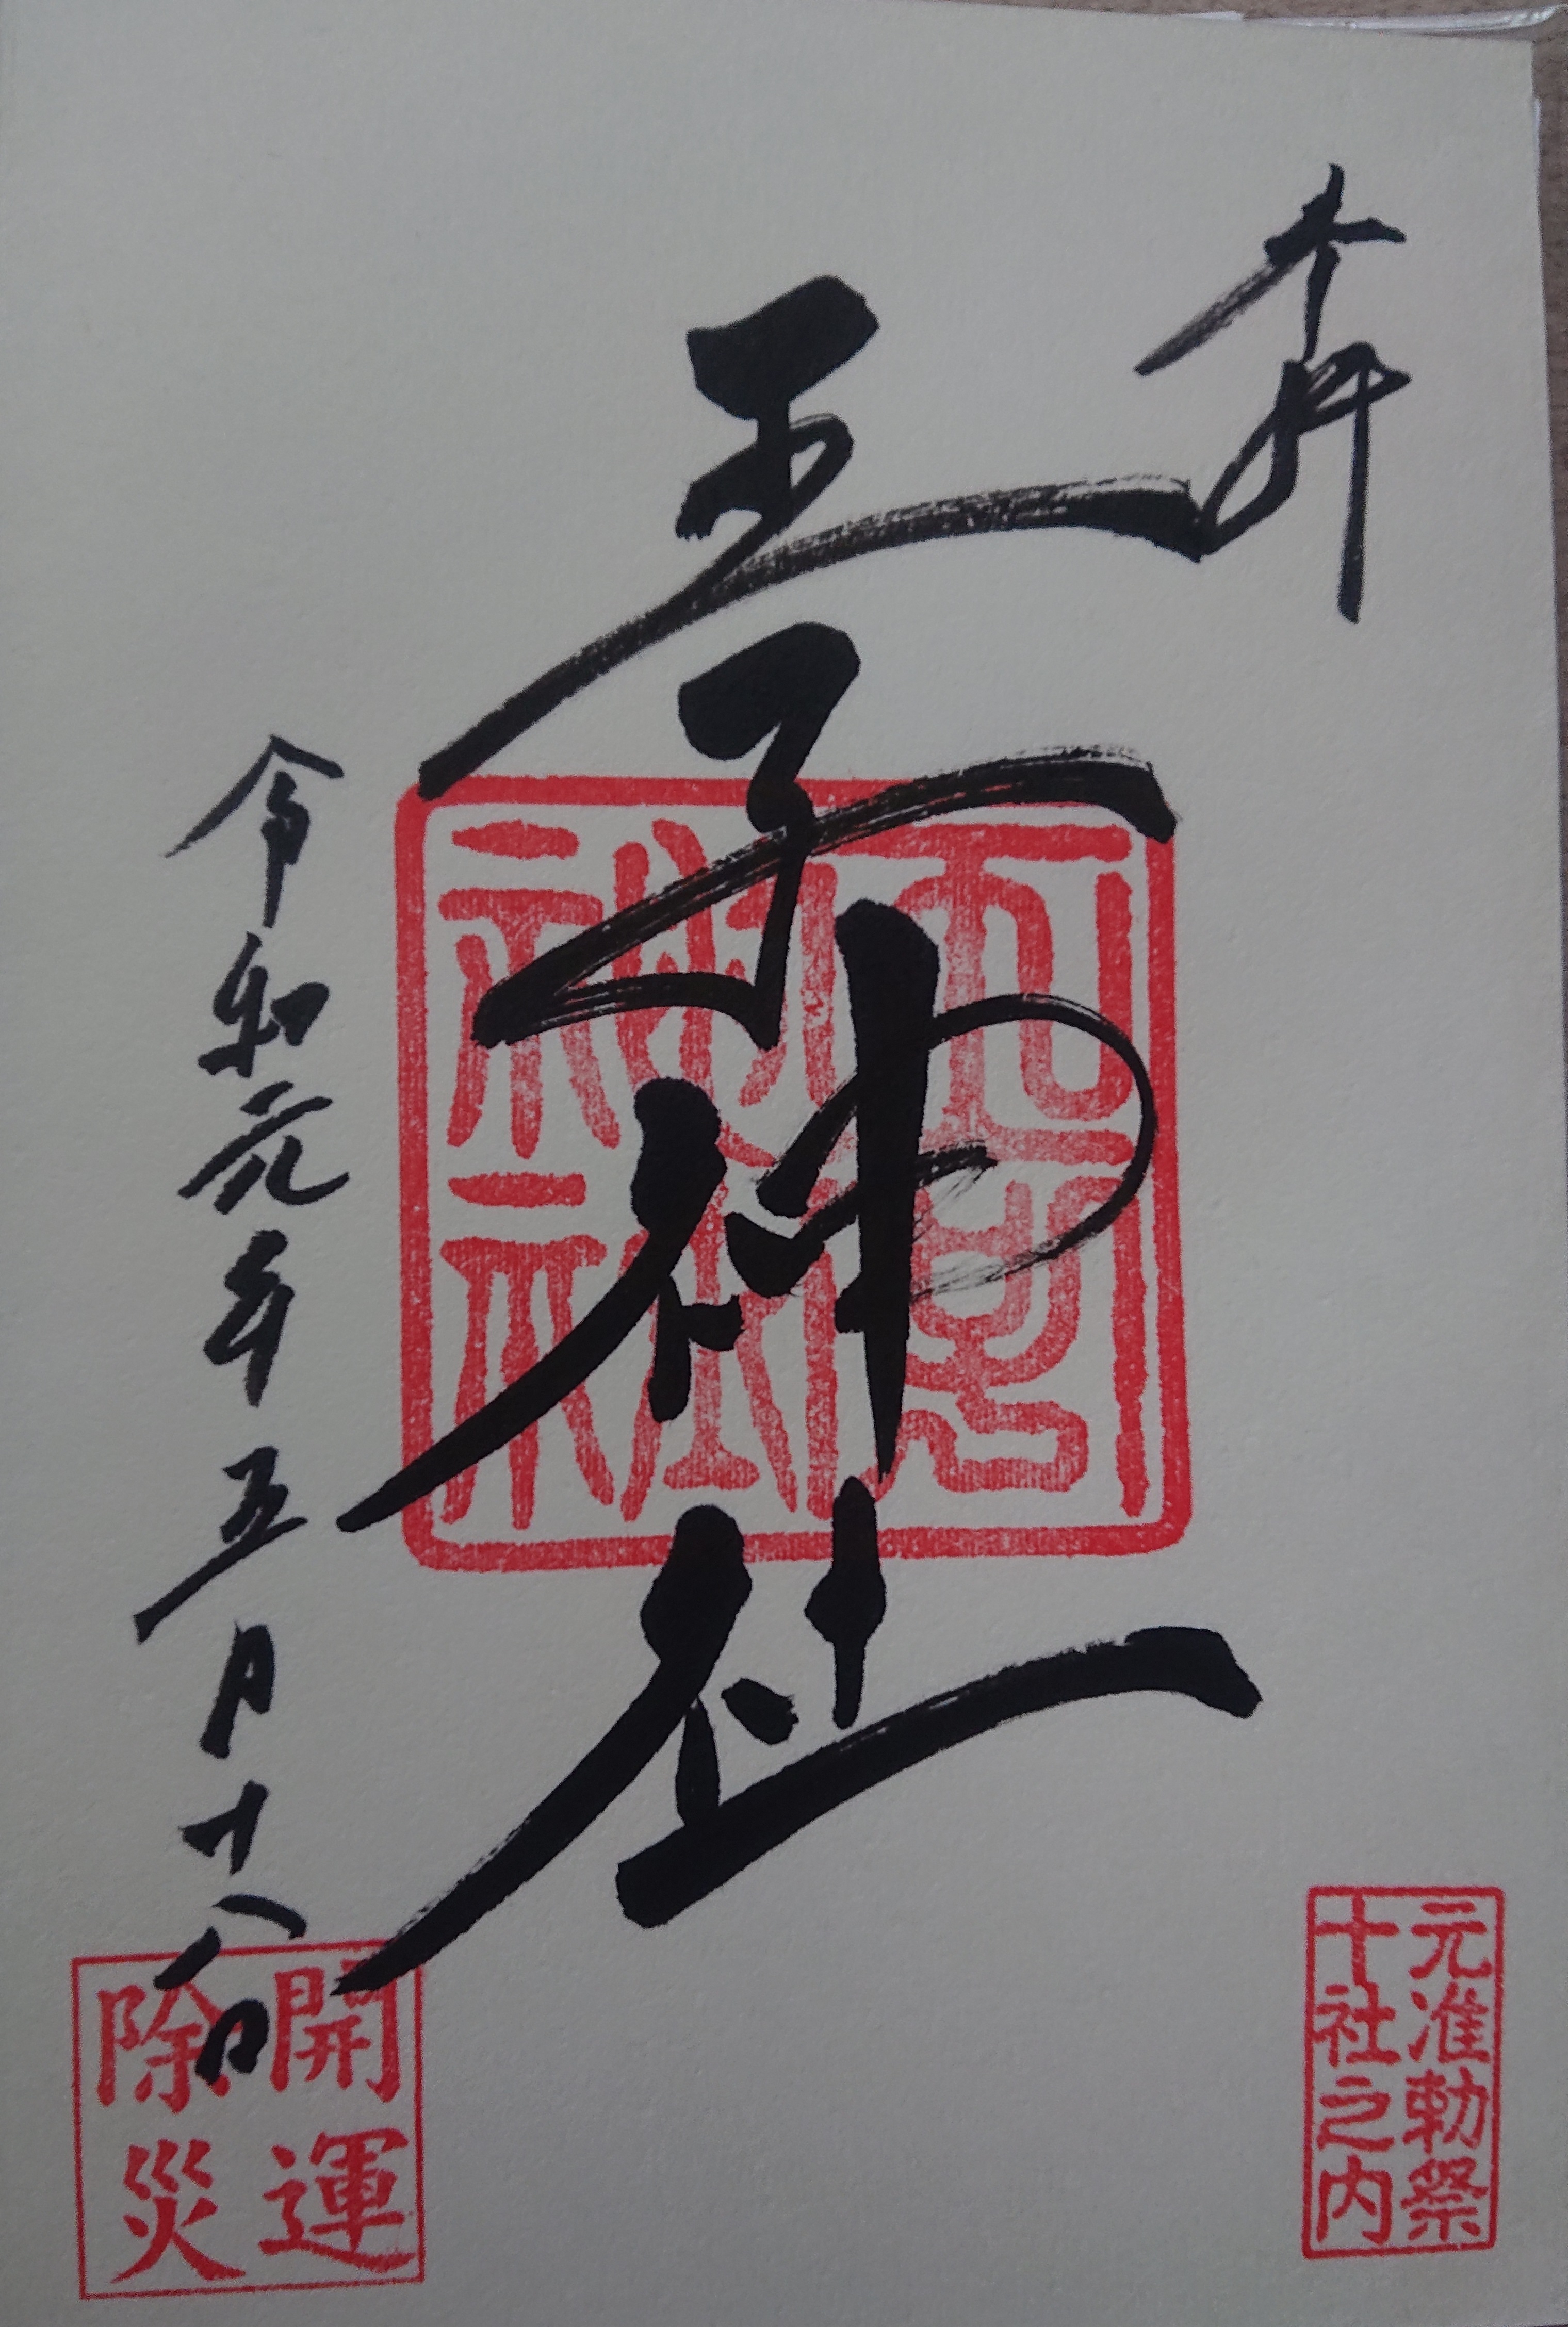 奉拝
王子神社
令和元年五月十八日
王子
神社
元准勅祭
十社之内
開運
除災